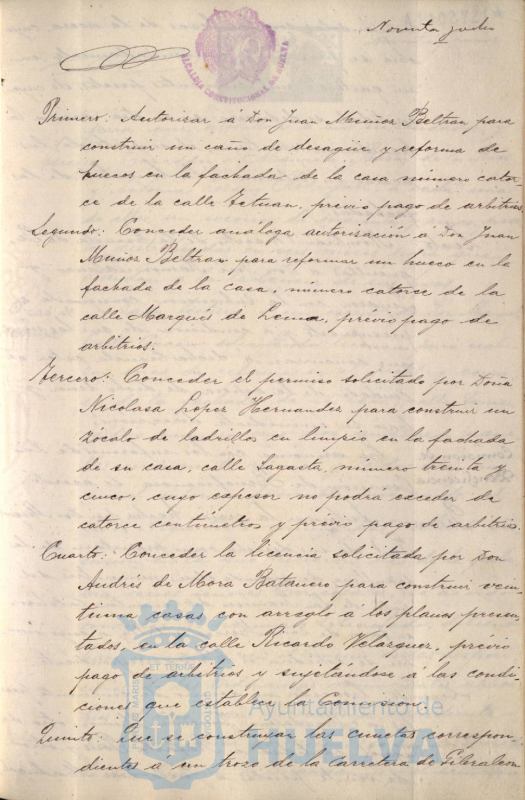 Noventa y ocho
ALCALDIA CONSTITUCIONAL DE HUELVA
Primero: Autorizar á Don Juan Muñoz Beltran para
construir un caño de desagüe y reforma de
huecos en la fachada de la casa número cator
ce de la calle Tetuan, prévio pago de arbitrios.
Segundo: Conceder análoga autorización á Don Juan
Muñoz Beltran para reformar un hueco en la
fachada de la casa, número catorce de la
calle Marqués de Lema, prévio pago de
arbitrios.
Tercero: Conceder el permiso solicitado por Doña
Nicolasa Lopez Hernandez para construir un
zócalo de ladrillos en limpio en la fachada
de su casa, calle Sagasta, número treinta y
cinco, cuyo espesor no podrá exceder de
catorce centímetros y prévio pago de arbitrios.
Cuarto: Conceder la licencia solicitada por Don
Andrés de Mora Batanero para construir vein
tiuna casas con arreglo á los planos presen
tados, en la calle Ricardo Velazquez, prévio
pago de arbitrios y sujetándose á las condi
ciones que establece la Comision.
Quinto: Que se construyan las cunetas correspon
dientes á un trozo de la carretera de Gibraleon
Ayuntamiento de
HUELVA